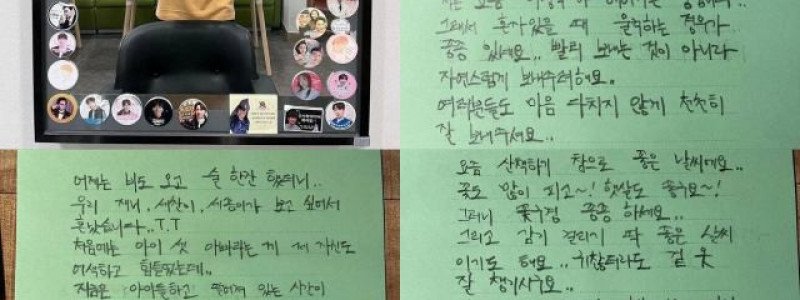 그래서 혼자있을 때 울적하는 경우가
종종 있네요.. 빨리 보내는 것이 아니라
자연스럽게 보내주려해요..
여러분들도 마음 다치지 않게 천천히
잘 보내주세요..
어제는 비도 오고 술 한잔 했더니..
우리 재니, 세찬이, 세종이가 보고 싶어서
혼났습니다..T.T
처음에는 아이 셋 아빠라는 게 제 자신도
어색하고 힘들었는데..
지금은 아이들하고 떨어져 있는 시간이
요즘 산책하기 참으로 좋은 날씨예요..
꽃도 많이 피고~! 햇살도 좋구요~!
그러니 꽃구경 종종 하세요..
그리고 감기 걸리기 딱 좋은 날씨
이기도 해요.. 귀찮더라도 겉 옷
잘 챙기시구요..